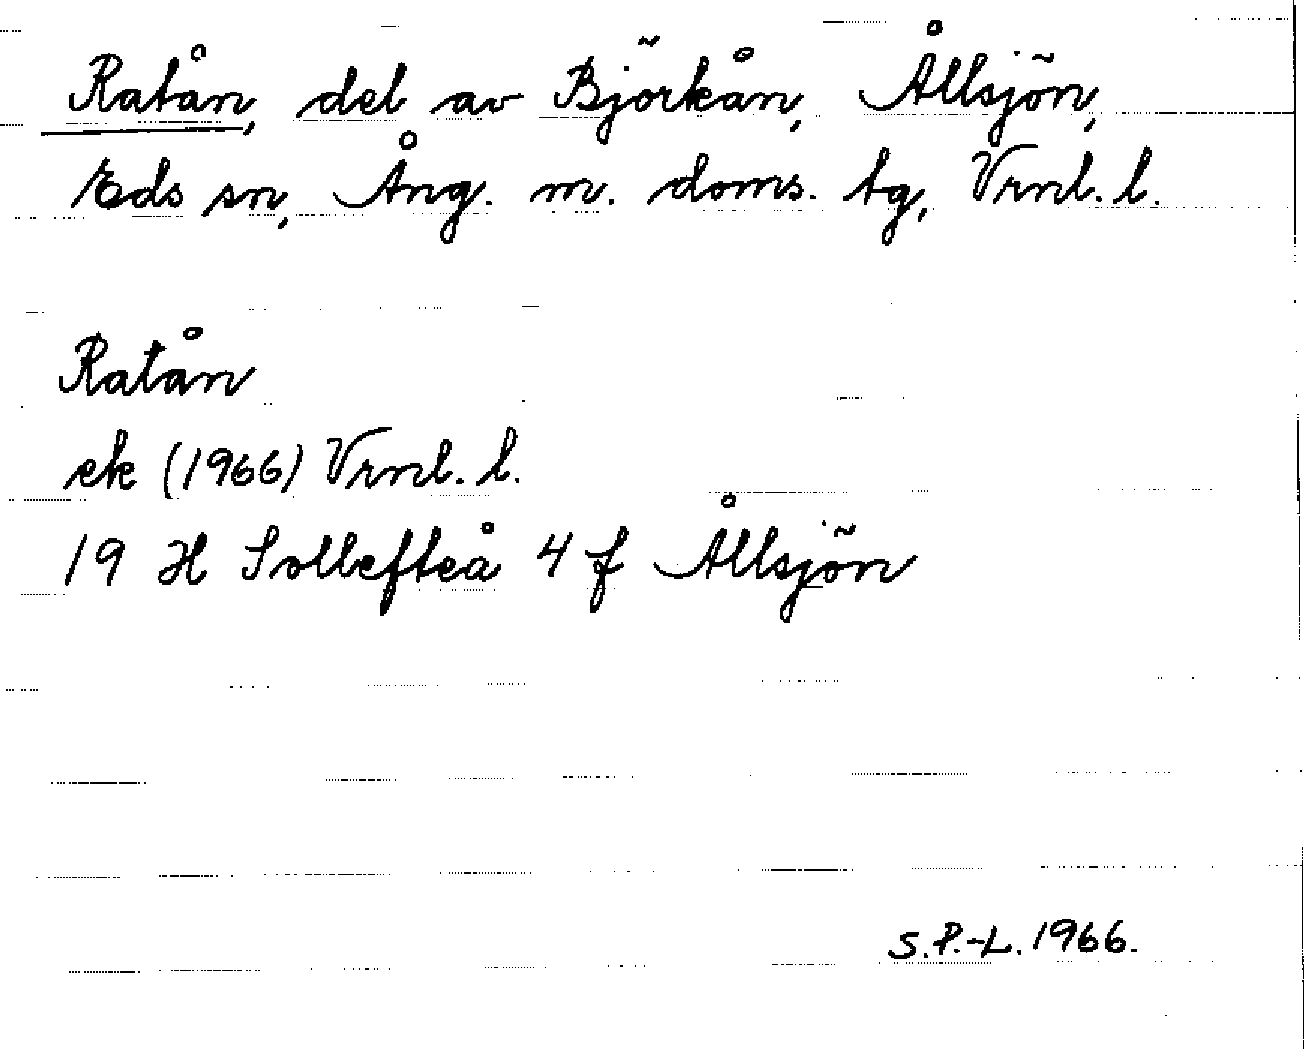 Ratån, del av Björkån, Ållsjön,
Eds sn, Ång. m. doms. tg, Vrnl. l.
Ratån
ek (1966) Vrnl. l.
19 H Sollefteå 4 f Ållsjön
S.P.-L. 1966.